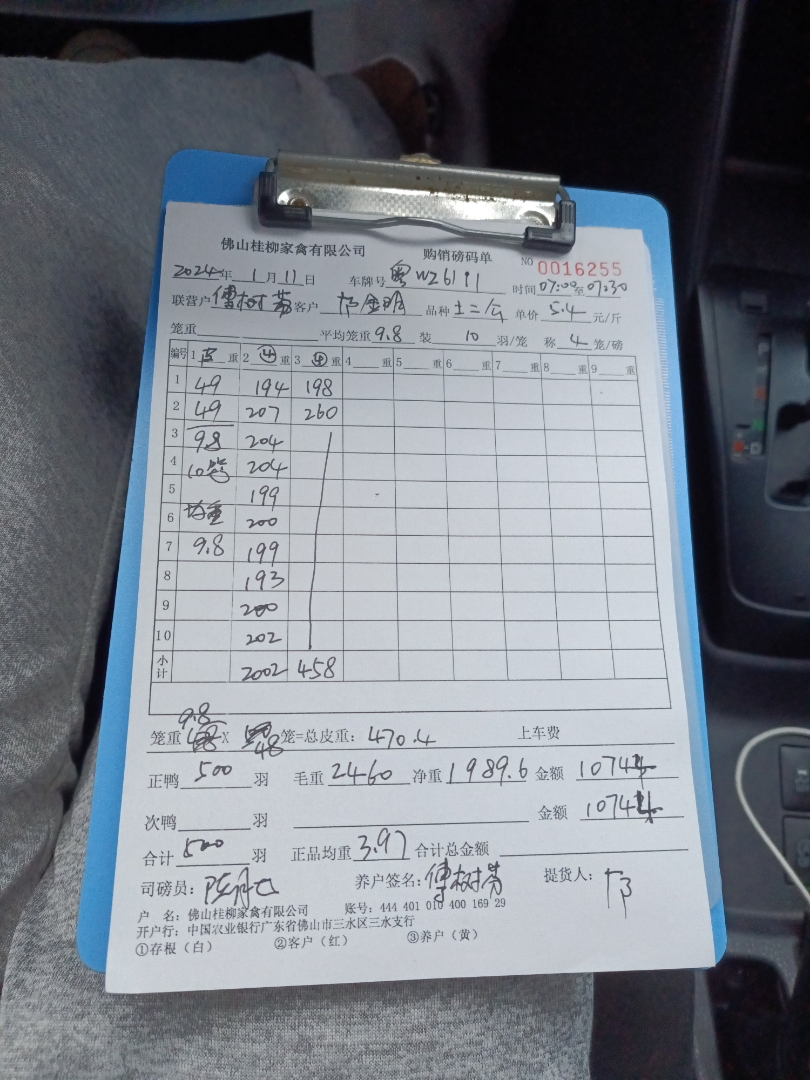 佛山桂柳家禽有限公司 购销磅码单 NO 0016255
2024年 1月 11日 车牌号 粤WZ6191 时间 07:00至07:30
联营户 傅树芬 客户 金明 品种 土二公 单价 5.4 元/斤
笼重 平均笼重 9.8 装 10 羽/笼 称 4 笼/磅
编号 1 皮 重 2 毛 重 3 毛 重 4 重 5 重 6 重 7 重 8 重 9 重
1 49 194 198
2 49 207 260
3 98 204
4 10笼 204
5 199
6 均重 200
7 9.8 199
8 193
9 200
10 202
小计 2002 458
9.8
笼重 X 48 笼=总皮重: 470.4 上车费
正鸭 500 羽 毛重 2460 净重 1989.6 金额 10744
次鸭 羽 金额 10744
合计 500 羽 正品均重 3.97 合计总金额
司磅员: 养户签名: 傅树芬 提货人:
户 名: 佛山桂柳家禽有限公司 账号: 444 401 010 400 169 29
开户行: 中国农业银行广东省佛山市三水区三水支行
①存根(白) ②客户(红) ③养户(黄)